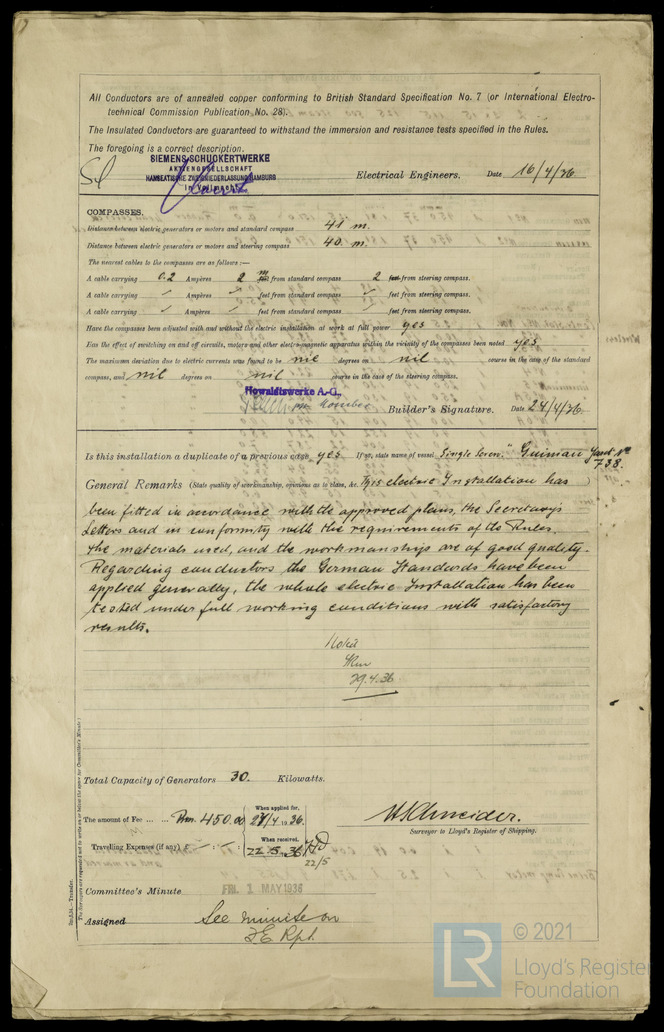 All Conductors are of annealed copper conforming to British Standard Specification No. 7 (or International Electro-
technical Commission Publication No. 28).
The Insulated Conductors are guaranteed to withstand the immersion and resistance tests specified in the Rules.
The foregoing is a correct description.
SIEMENS-SCHUCKERTWERKE
AKTIENGESELLSCHAFT
HANSEATISCHE ZWEIGNIEDERLASSUNG HAMBURG
In Vollmacht
Electrical Engineers. Date 16/4/36
COMPASSES.
Distance between electric generators or motors and standard compass 41 m.
Distance between electric generators or motors and steering compass 40 m.
The nearest cables to the compasses are as follows:—
A cable carrying 0.2 Ampères 2 m feet from standard compass 2 feet from steering compass.
A cable carrying Ampères feet from standard compass feet from steering compass.
A cable carrying Ampères feet from standard compass feet from steering compass.
Have the compasses been adjusted with and without the electric installation at work at full power yes
Has the effect of switching on and off circuits, motors and other electro-magnetic apparatus within the vicinity of the compasses been noted yes
The maximum deviation due to electric currents was found to be nil degrees on nil course in the case of the standard
compass, and nil degrees on nil course in the case of the steering compass.
Howaldtswerke A.-G.,
Builder's Signature. Date 24/4/36
Is this installation a duplicate of a previous case yes If so, state name of vessel Single Screw "Guinean Yard No
738.
General Remarks (State quality of workmanship, opinions as to class, &c. This electric Installation has )
been fitted in accordance with the approved plans, the Secretary's
Letters and in conformity with the requirements of the Rules.
The materials used, and the workmanships are of good quality.
Regarding conductors the German Standards have been
applied generally, the whole electric Installation has been
tested under full working conditions with satisfactory
results.
Noted
29.4.36
Total Capacity of Generators 30. Kilowatts.
The amount of Fee ... ... Rm. 450.00 When applied for, 27/4 1936.
H Schneider.
Surveyor to Lloyd's Register of Shipping.
Travelling Expenses (if any) £ : : When received, 22.5.36
22/5
Committee's Minute FRI. 1 MAY 1936
Assigned See minute on
F.E. Rpt.
The Surveyors are requested not to write on or below the space for Committee's Minute.
LR
© 2021
Lloyd's Register
Foundation